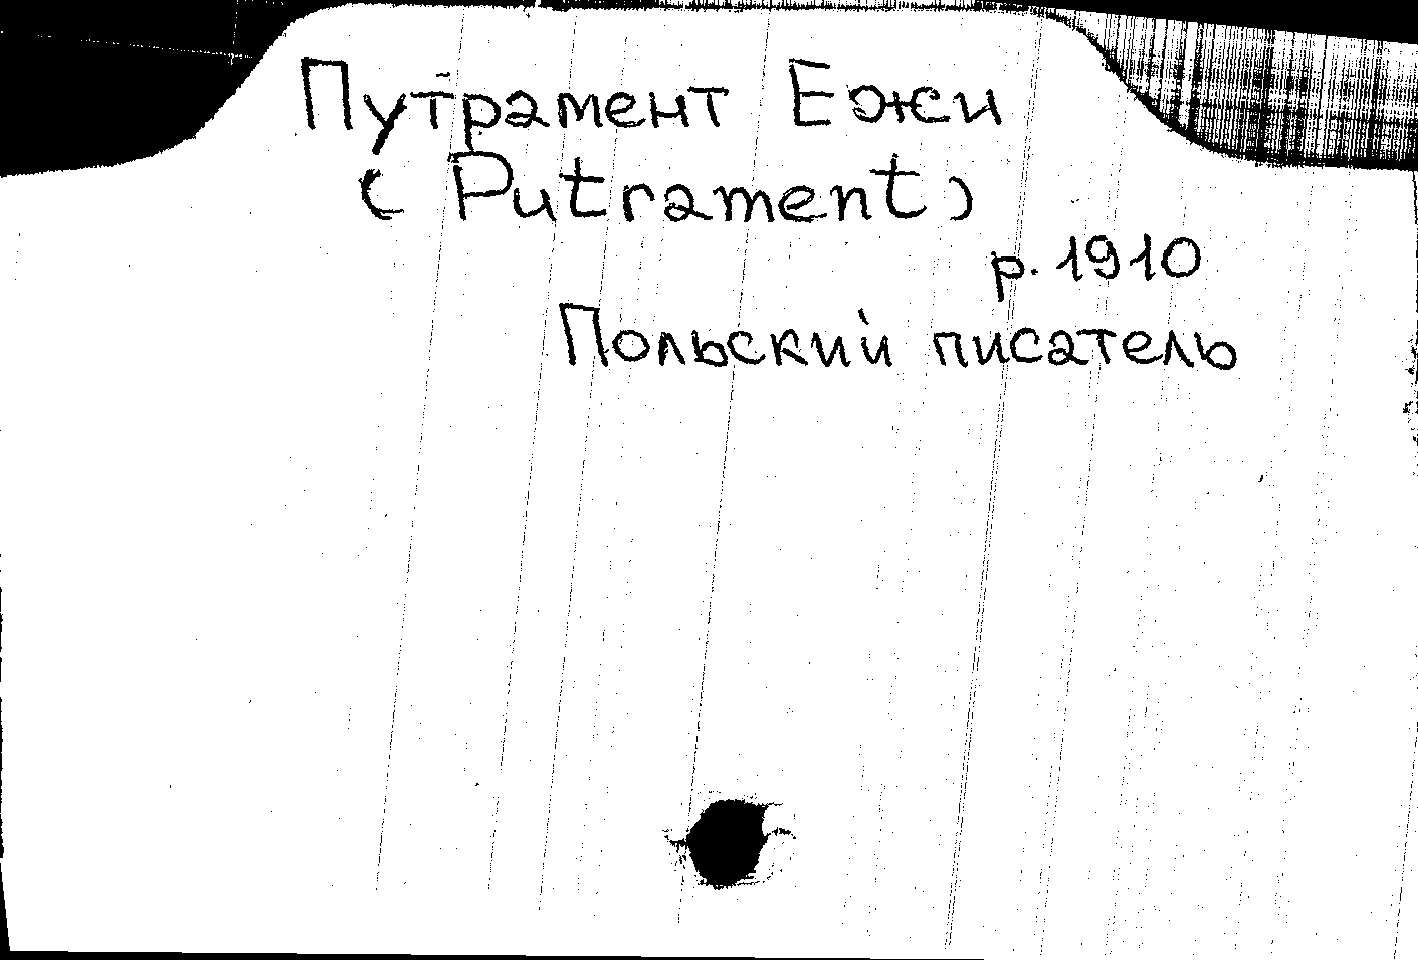 Путрамент Ежи
(Putrament)
р. 1910
Польский писатель